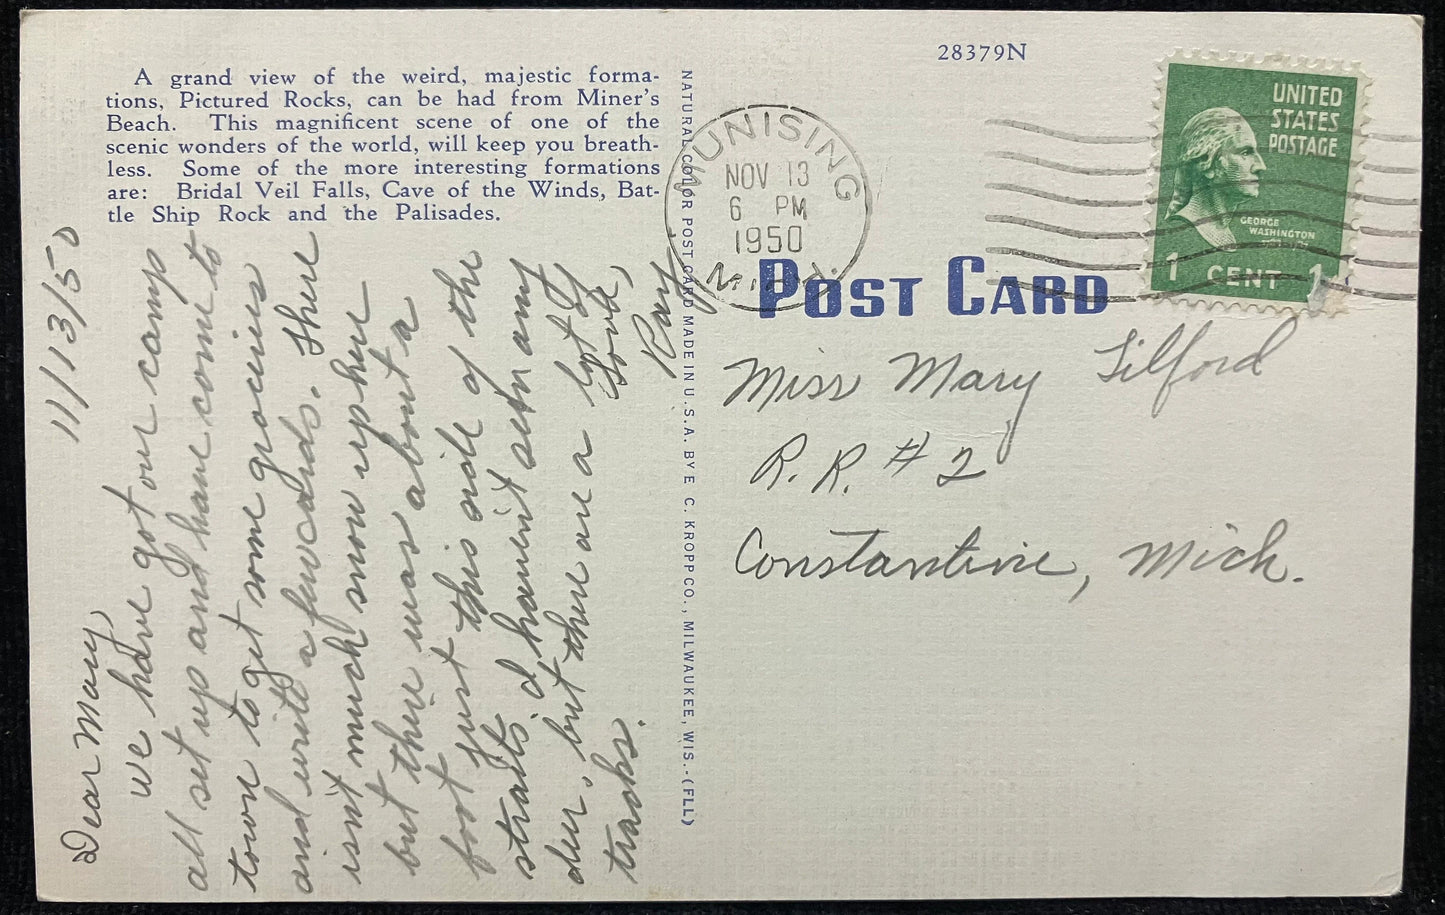 A grand view of the weird, majestic forma-
tions, Pictured Rocks, can be had from Miner's
Beach. This magnificent scene of one of the
scenic wonders of the world, will keep you breath-
less. Some of the more interesting formations
are: Bridal Veil Falls, Cave of the Winds, Bat-
tle Ship Rock and the Palisades.
11/13/50
Dear Mary,
We have got our camp
all set up and have come to
town to get some groceries
and write a few cards. There
isn't much snow up here
but there was about a
foot just this side of the
straits. I haven't seen any
deer, but there are a lot of
tracks.
Love,
Ray
NATURAL COLOR POST CARD MADE IN U.S.A. BY E. C. KROPP CO., MILWAUKEE, WIS.-(FLL)
28379N
MUNISING
NOV 13
6 PM
1950
UNITED
STATES
POSTAGE
GEORGE
WASHINGTON
1 CENT 1
POST CARD
Miss Mary Tilford
R.R. #2
Constantine, Mich.